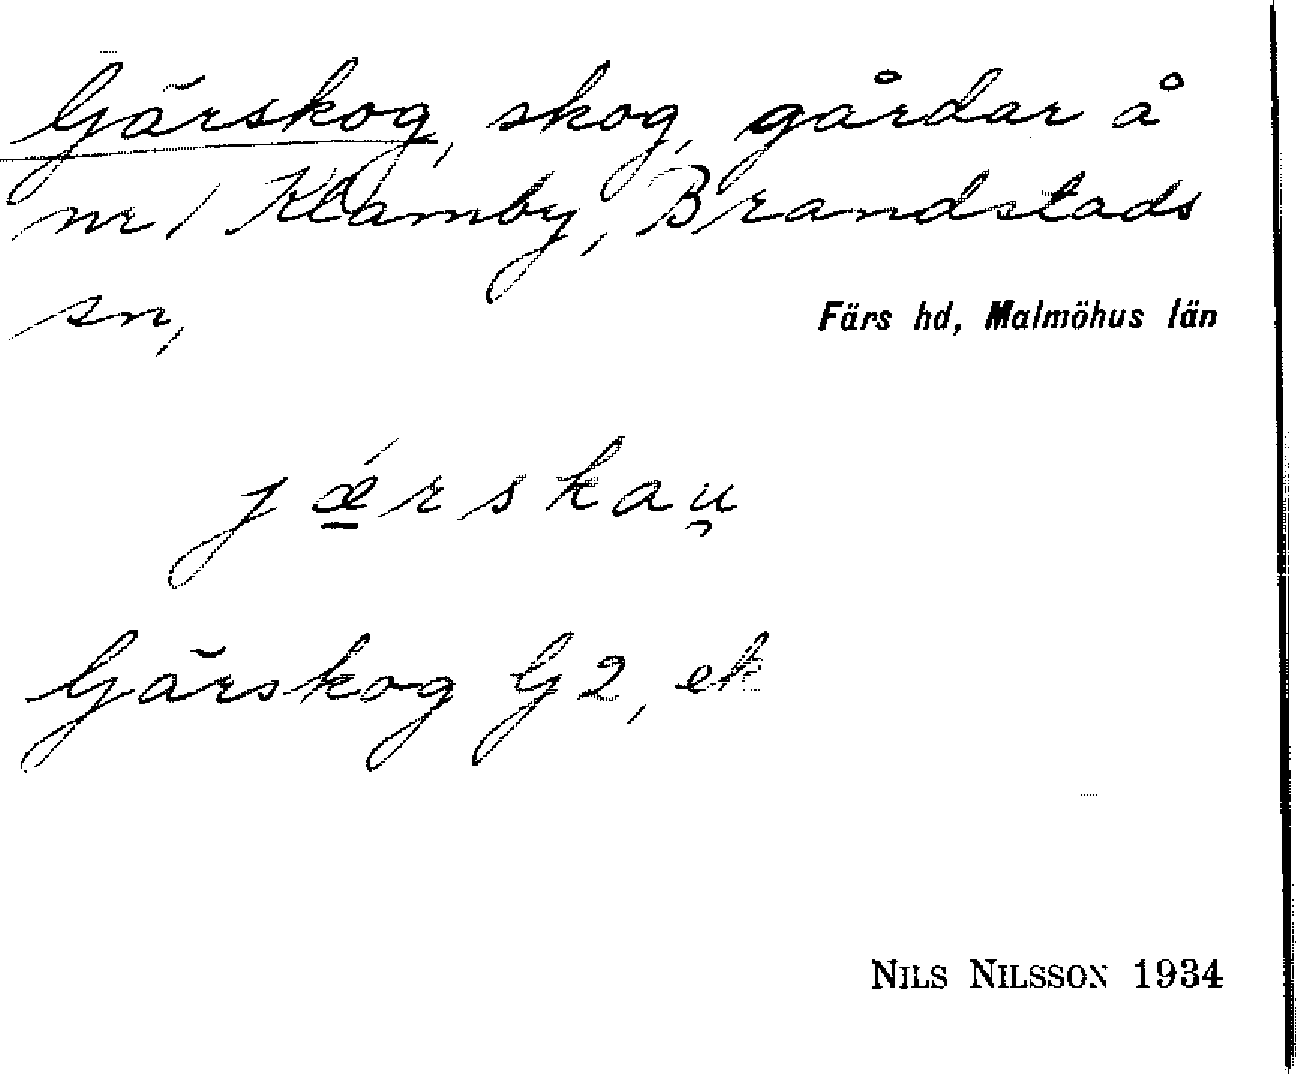 Gärskog, skog, gårdar å
nr 1 Klamby, Brandstads
sn,
Färs hd, Malmöhus län
jǽ̱rskau̯
Gärskog G2, ek
NILS NILSSON 1934